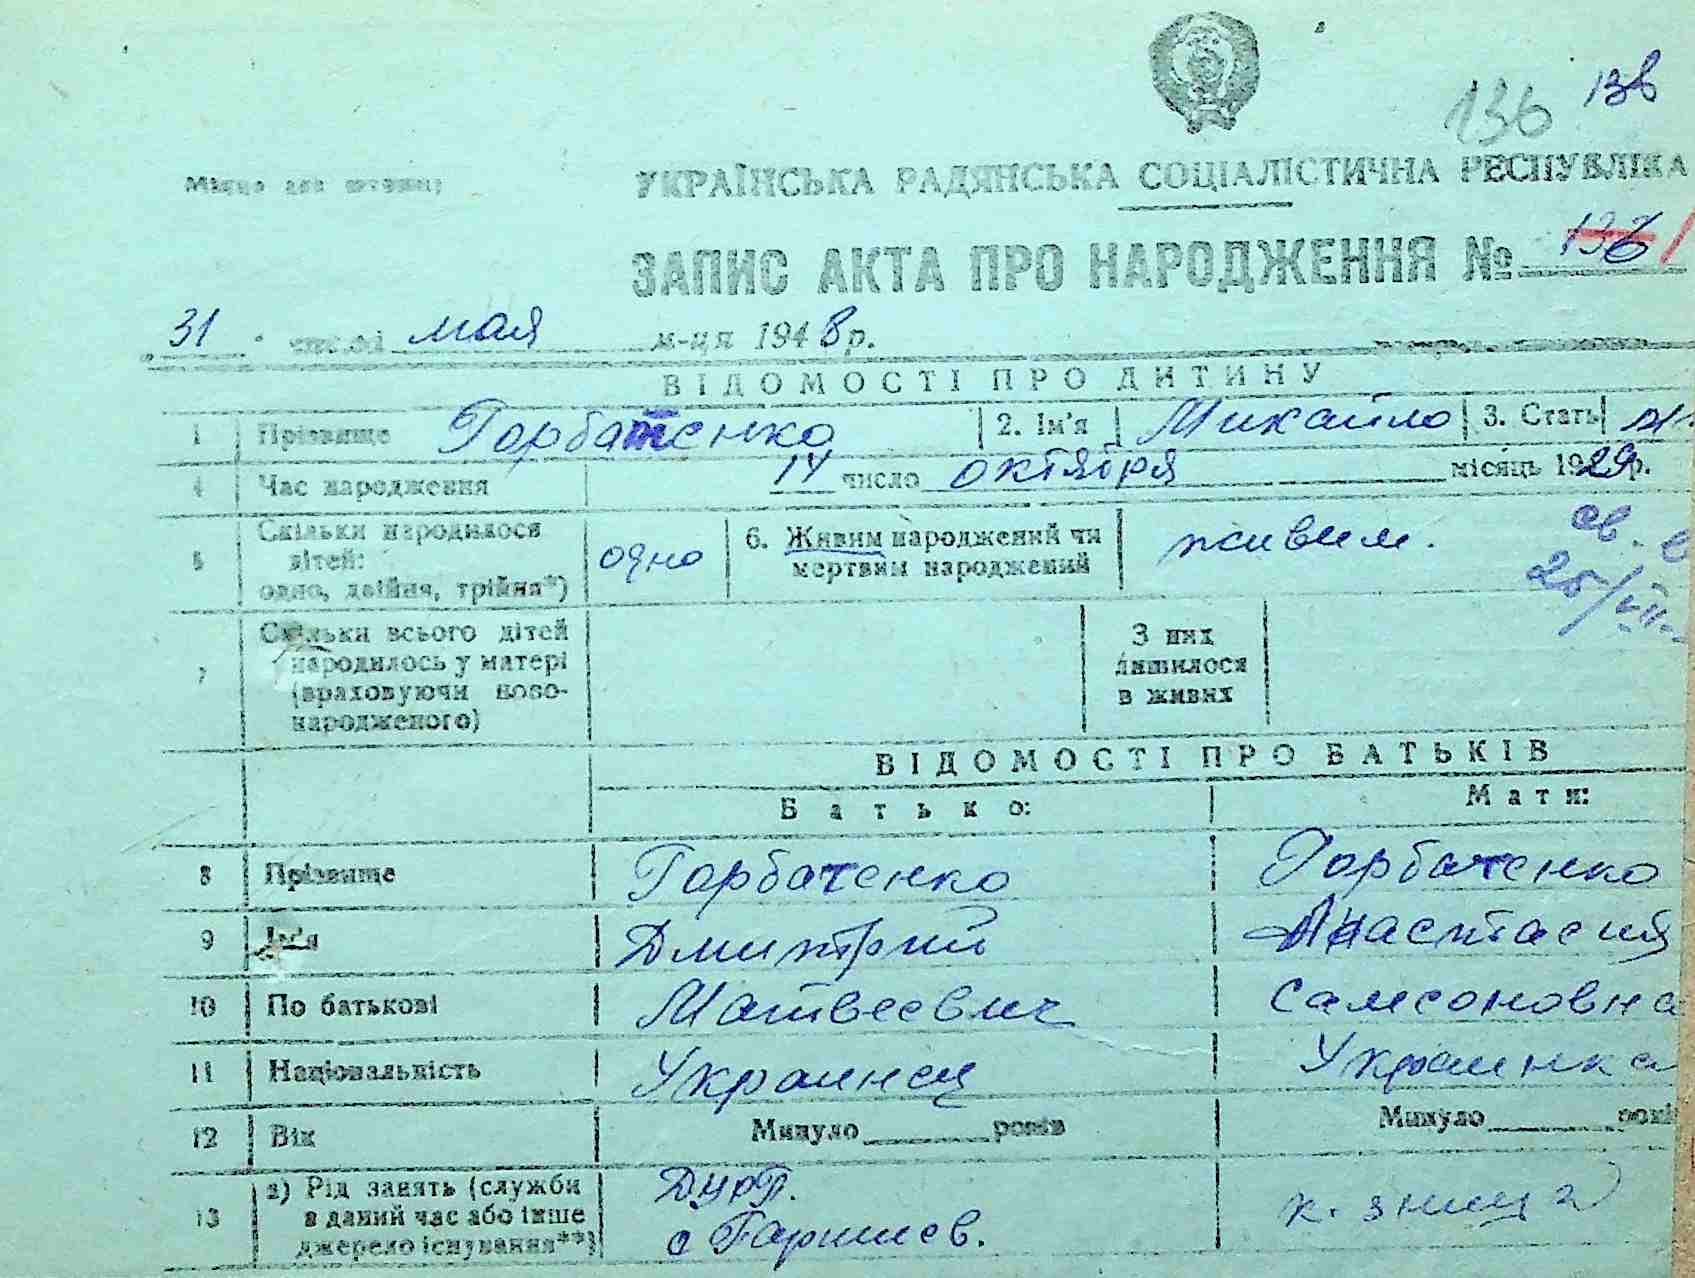 136 136
Місце для штампу
УКРАЇНСЬКА РАДЯНСЬКА СОЦІАЛІСТИЧНА РЕСПУБЛІКА
ЗАПИС АКТА ПРО НАРОДЖЕННЯ № 136
31 числа мая м-ця 1948 р.
ВІДОМОСТІ ПРО ДИТИНУ
1 Прізвище Горбатенко 2. Ім'я Михайло 3. Стать
4 Час народження 14 число октября місяць 1929 р.
5 Скільки народилося дітей: одно, двійня, трійня*) одно 6. Живим народжений чи мертвим народжений живим.
св.
25/VII
7 Скільки всього дітей народилось у матері (враховуючи новонародженого) З них лишилося в живих
ВІДОМОСТІ ПРО БАТЬКІВ
Батько: Мати:
8 Прізвище Горбатенко Горбатенко
9 Ім'я Дмитрий Анастасия
10 По батькові Матвеевич Самсоновна
11 Національність Украинец Украинка
12 Вік Минуло ____ років Минуло ____ рокі
13 а) Рід занять (служби в даний час або інше джерело існування**)